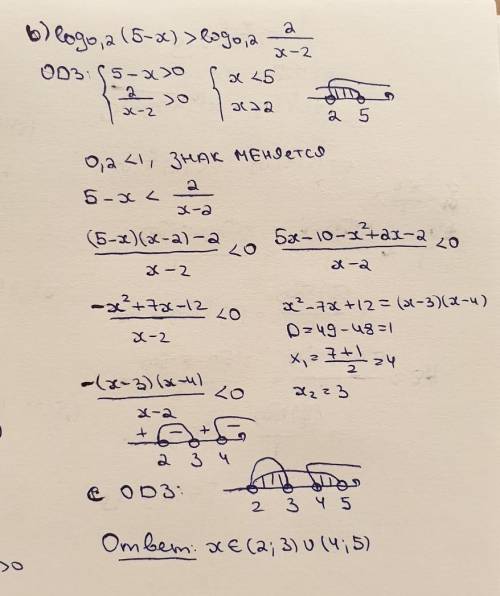 b) log₀,₂(5-x) > log₀,₂ 2/(x-2)
ОДЗ: { 5-x>0 { x<5
2/(x-2) >0 x>2
2 5
0,2<1, ЗНАК МЕНЯЕТСЯ
5-x < 2/(x-2)
((5-x)(x-2)-2)/(x-2) <0 (5x-10-x²+2x-2)/(x-2) <0
(-x²+7x-12)/(x-2) <0 x²-7x+12=(x-3)(x-4)
D=49-48=1
x₁=(7+1)/2=4
(-(x-3)(x-4))/(x-2) <0 x₂=3
+ - + -
2 3 4
с ОДЗ:
2 3 4 5
Ответ: x∈(2;3)∪(4;5)
>0